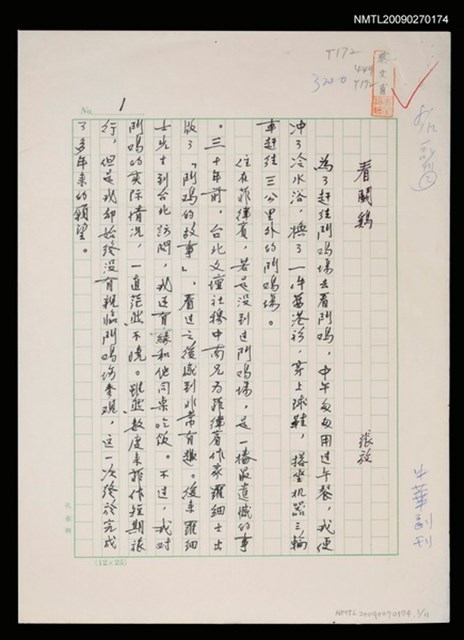 NMTL20090270174
T172
320
No. 1
看鬪鷄
張放
為了趕往鬥鷄場去看鬥鷄，中午匆匆用過午餐，我便
冲了冷水浴，換了一件香港衫，穿上球鞋，搭坐机器三輪
車趕往三公里外的鬥鷄場。
住在菲律賓，若是没到过鬥鷄場，是一樁最遺憾的事
。三十年前，台北文壇社穆中南兄为菲律賓作家羅細士出
版了「鬥鷄的故事」，看过之後感到非常有趣。後来羅細
士先生到台北訪問，我还有緣和他同桌吃飯。不过，我对
鬥鷄的实际情况，一直茫然不曉。雖然数度来菲作短期旅
行，但是我却始終没有親临鬥鷄場参观，这一次終於完成
了多年来的願望。
中華副刊
(12×25)
NMTL20090270174 1/11